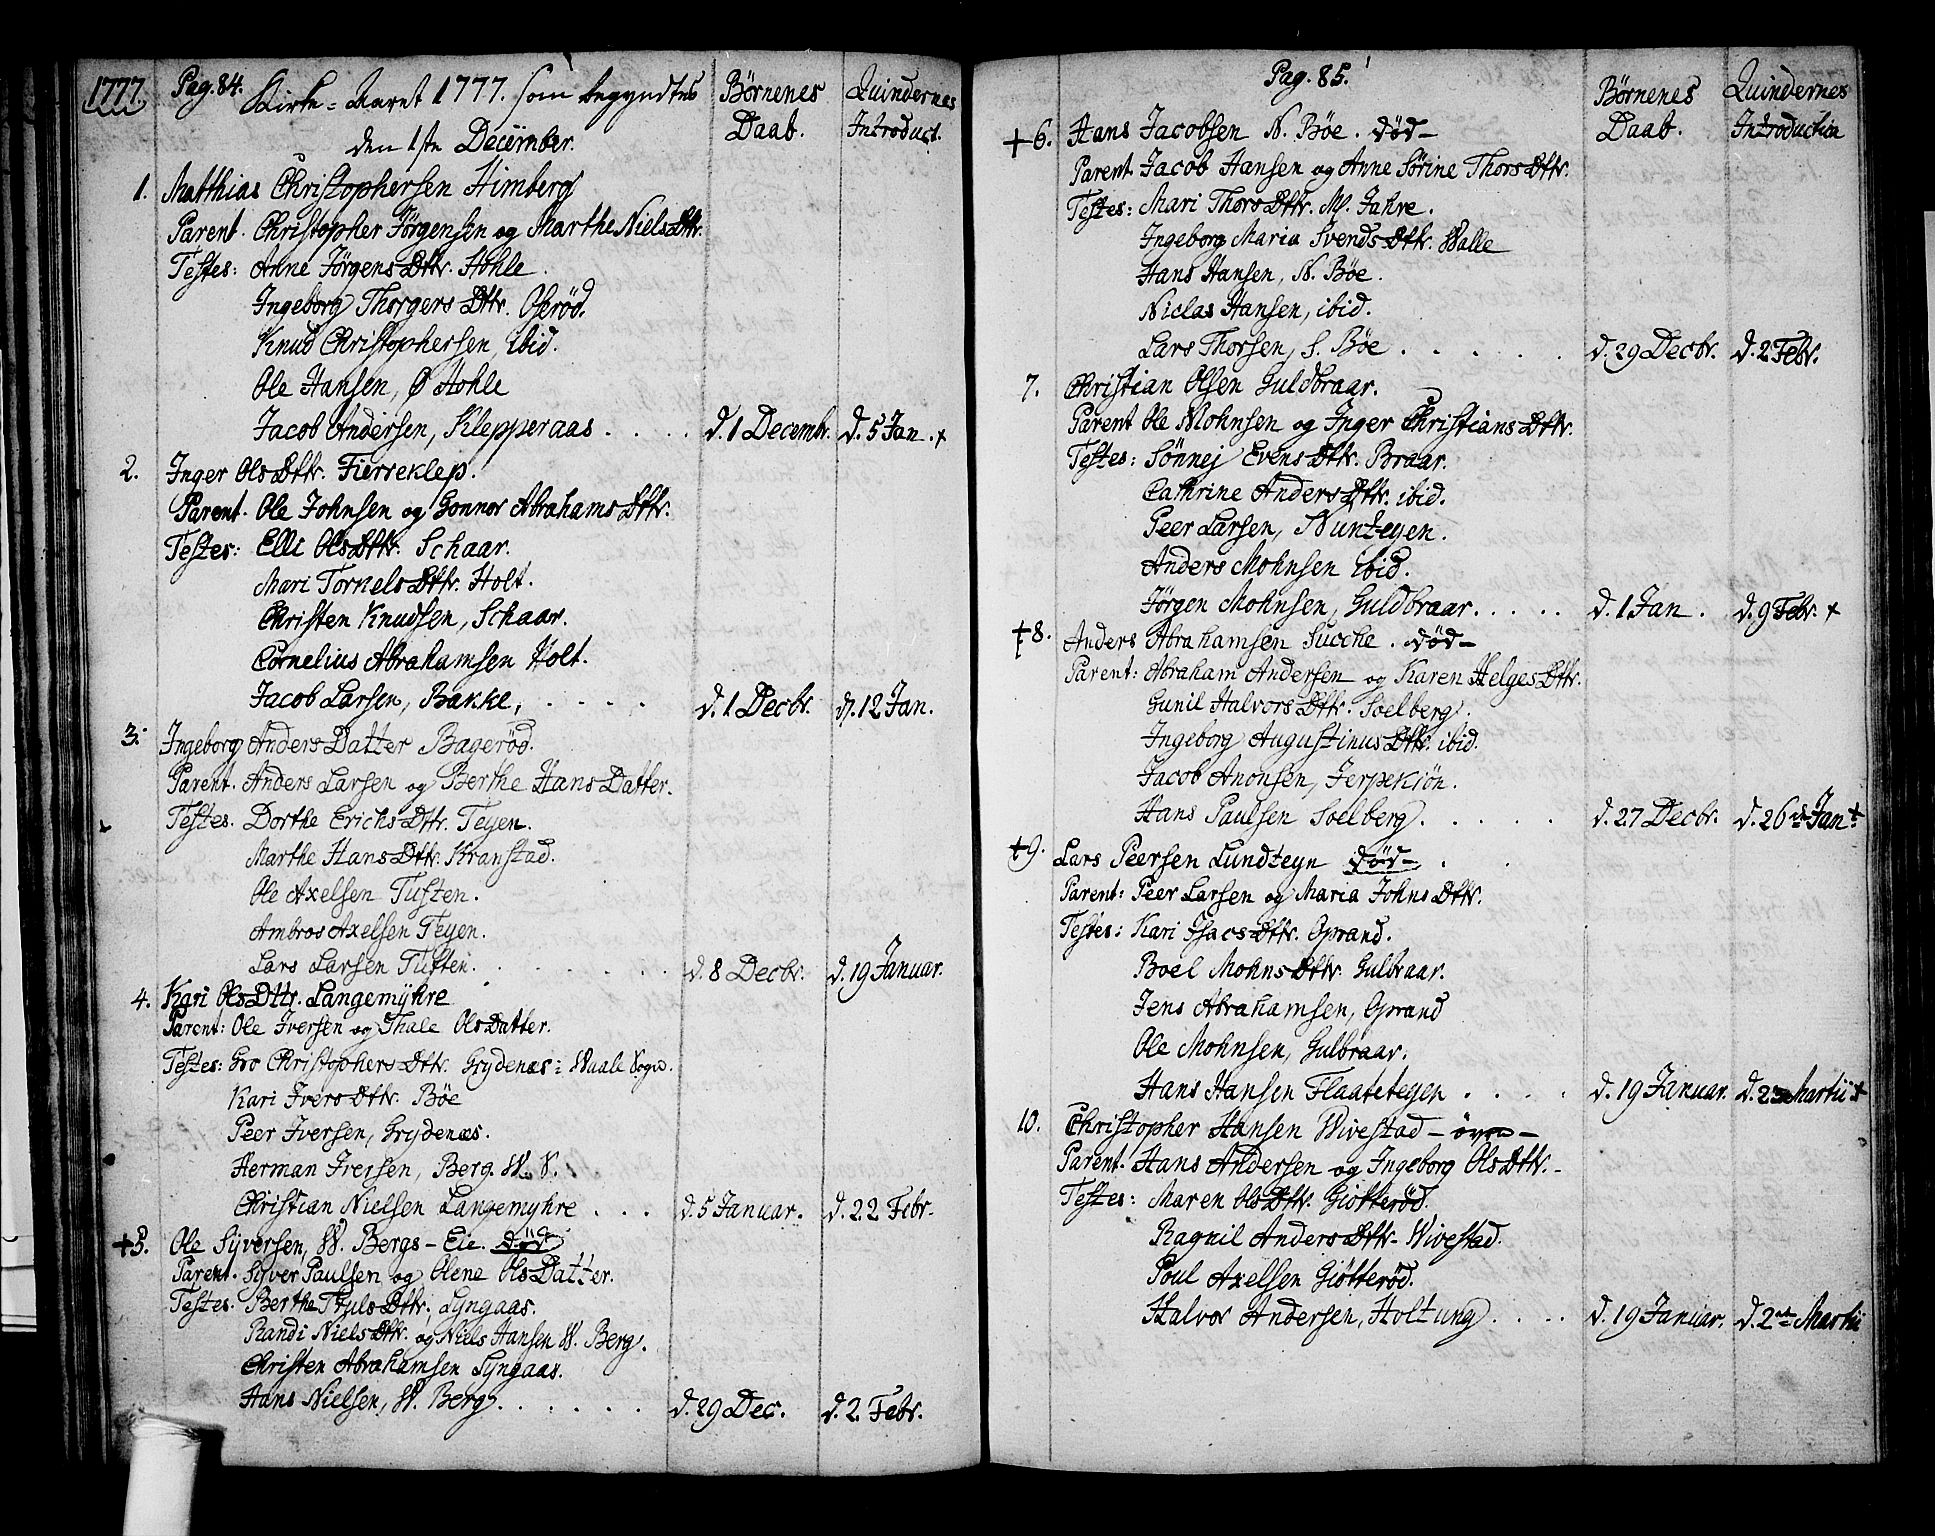 1777. Pag. 84. Kirke-Aaret 1777. som begyndtes Børnenes Quindernes
den 1ste December. Daab. Introduct.
1. Matthias Christophersen Himberg
Parent. Christopher Jørgensen og Marthe Niels Dttr.
Testes: Anne Jørgens Dttr. Hohle.
Ingeborg Thorgers Dttr. Oserød.
Knud Christophersen, ibid.
Ole Hansen, Ø Hohle
Jacob Andersen, Klepperaas . . . . d. 1 Decembr. d. 5 Jan. +
2. Inger Ols Dttr. Fierreklep.
Parent. Ole Johnsen og Gonnor Abrahams Dttr.
Testes: Elli Ols Dttr. Schaar.
Mari Torkels Dttr. Holt.
Christen Knudsen, Schaar.
Cornelius Abrahamsen Holt.
Jacob Larsen, Bakke, . . . . d. 1 Decbr. d. 12 Jan.
3. Ingeborg Anders Datter Bagerød.
Parent. Anders Larsen og Berthe Hans Datter.
Testes. Dorthe Erichs Dttr. Teyen.
Marthe Hans Dttr. Kranstad.
Ole Axelsen Tuften.
Ambros Axelsen Teyen.
Lars Larsen Tuften. . . . . . . d. 8 Decbr. d. 19 Januar.
4. Kari Ols Dttr. Langemyhre
Parent: Ole Iversen og Thale Ols Datter.
Testes: Gro Christophers Dttr. Grydenæs: Waale Sogn.
Kari Ivers Dttr. Bøe
Peer Iversen, Grydenæs.
Herman Iversen, Berg. W. S.
Christian Nielsen Langemyhre . . . d. 5 Januar. d. 22 Febr.
+5. Ole Syversen, W. Bergs-Eie. død
Parent. Syver Paulsen og Olene Ols Datter.
Testes. Berthe Truls Dttr. Lyngaas.
Randi Niels Dttr. og Niels Hansen W. Berg.
Christen Abrahamsen Lyngaas.
Hans Nielsen, W. Berg. . . . . . d. 29 Dec. d. 2. Febr.
Pag. 85. Børnenes Quindernes
+6. Hans Jacobsen N. Bøe. død— Daab. Introduction
Parent Jacob Hansen og Anne Sørine Thors Dttr.
Testes: Mari Thors Dttr. M. Jahre.
Ingeborg Maria Svends Dttr. Walle
Hans Hansen, N. Bøe.
Niclas Hansen, ibid.
Lars Thorsen, S. Bøe . . . . . d. 29 Decbr. d. 2 Febr.
7. Christian Olsen Guldbraar.
Parent Ole Mohnsen og Inger Christians Dttr.
Testes: Sönnej Evens Dttr. Braar.
Cathrine Anders Dttr. ibid.
Peer Larsen,
Anders Mohnsen ibid.
Jørgen Mohnsen, Guldbraar. . . . . d. 1 Jan. d. 9 Febr. +
+8. Anders Abrahamsen Sucche. død—
Parent: Abraham Andersen og Karen Helges Dttr.
Gunil Halvors Dttr. Soelberg.
Ingeborg Augustinus Dttr. ibid.
Jacob Anonsen, Jerpekiøn.
Hans Paulsen Soelberg. . . . . . d. 27 Decbr. d. 26de Jan +
+9. Lars Peersen Lundteyn død— .
Parent: Peer Larsen og Maria Johns Dttr.
Testes: Kari Isacs Dttr. Oprand.
Boel Mohns Dttr. Gulbraar.
Jens Abrahamsen, Oprand
Ole Mohnsen, Gulbraar.
Hans Hansen Flaateteyen . . . . d. 19 Januar. d. 2 Martii +
10. Christopher Hansen Wivestad —øvre—
Parent. Hans Andersen og Ingeborg Ols Dttr.—
Testes: Maren Ols Dttr. Giötterød.
Ragnil Anders Dttr. Wivestad.
Poul Axelsen Giötterød.
Halvor Andersen, Holtung. . . . . d. 19 Januar. d. 2den Martii